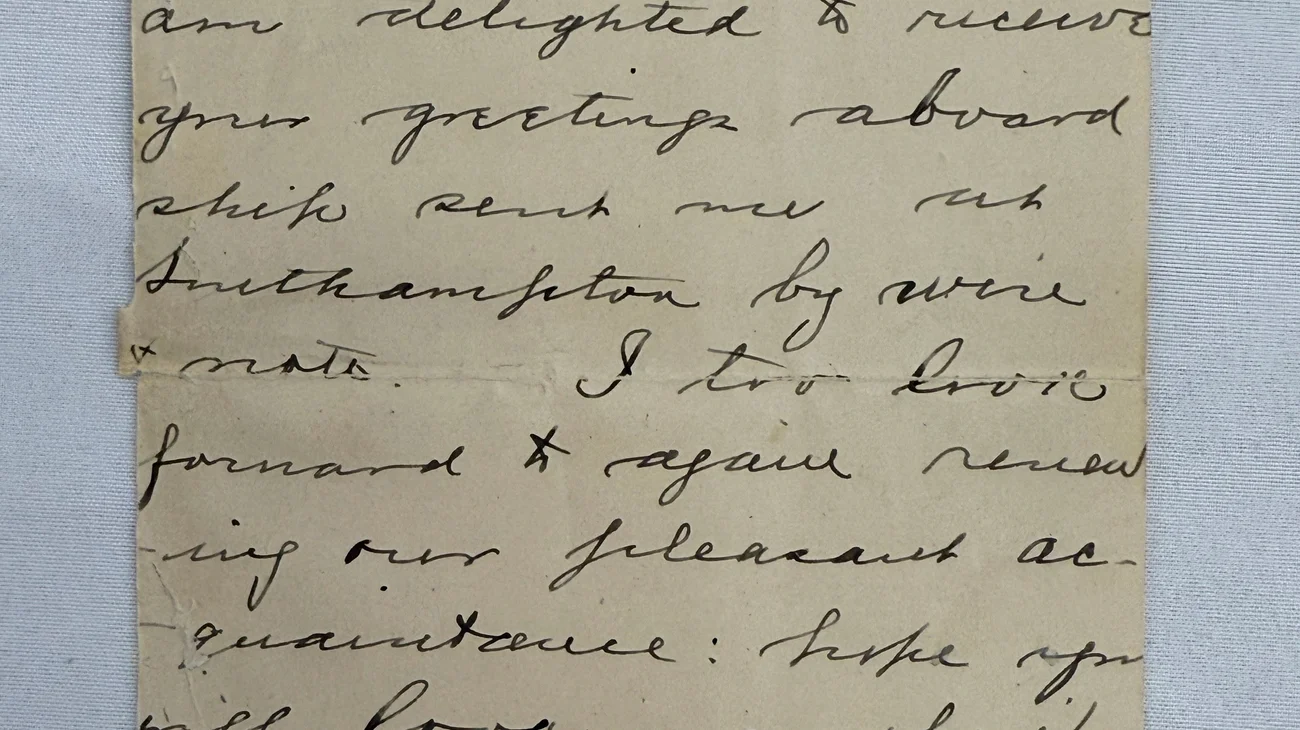 am delighted to receive
your greetings aboard
ship sent me at
Southampton by wire
& note. I too look
forward to again renew
-ing our pleasant ac-
quaintance: hope you
will